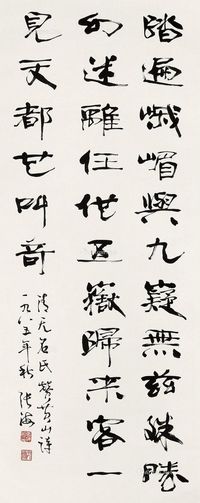 踏遍峨嵋與九嶷無茲殊勝
幻迷離任他五嶽歸來客一
見天都也叫奇
清无名氏赞黄山诗
一九八五年秋张海